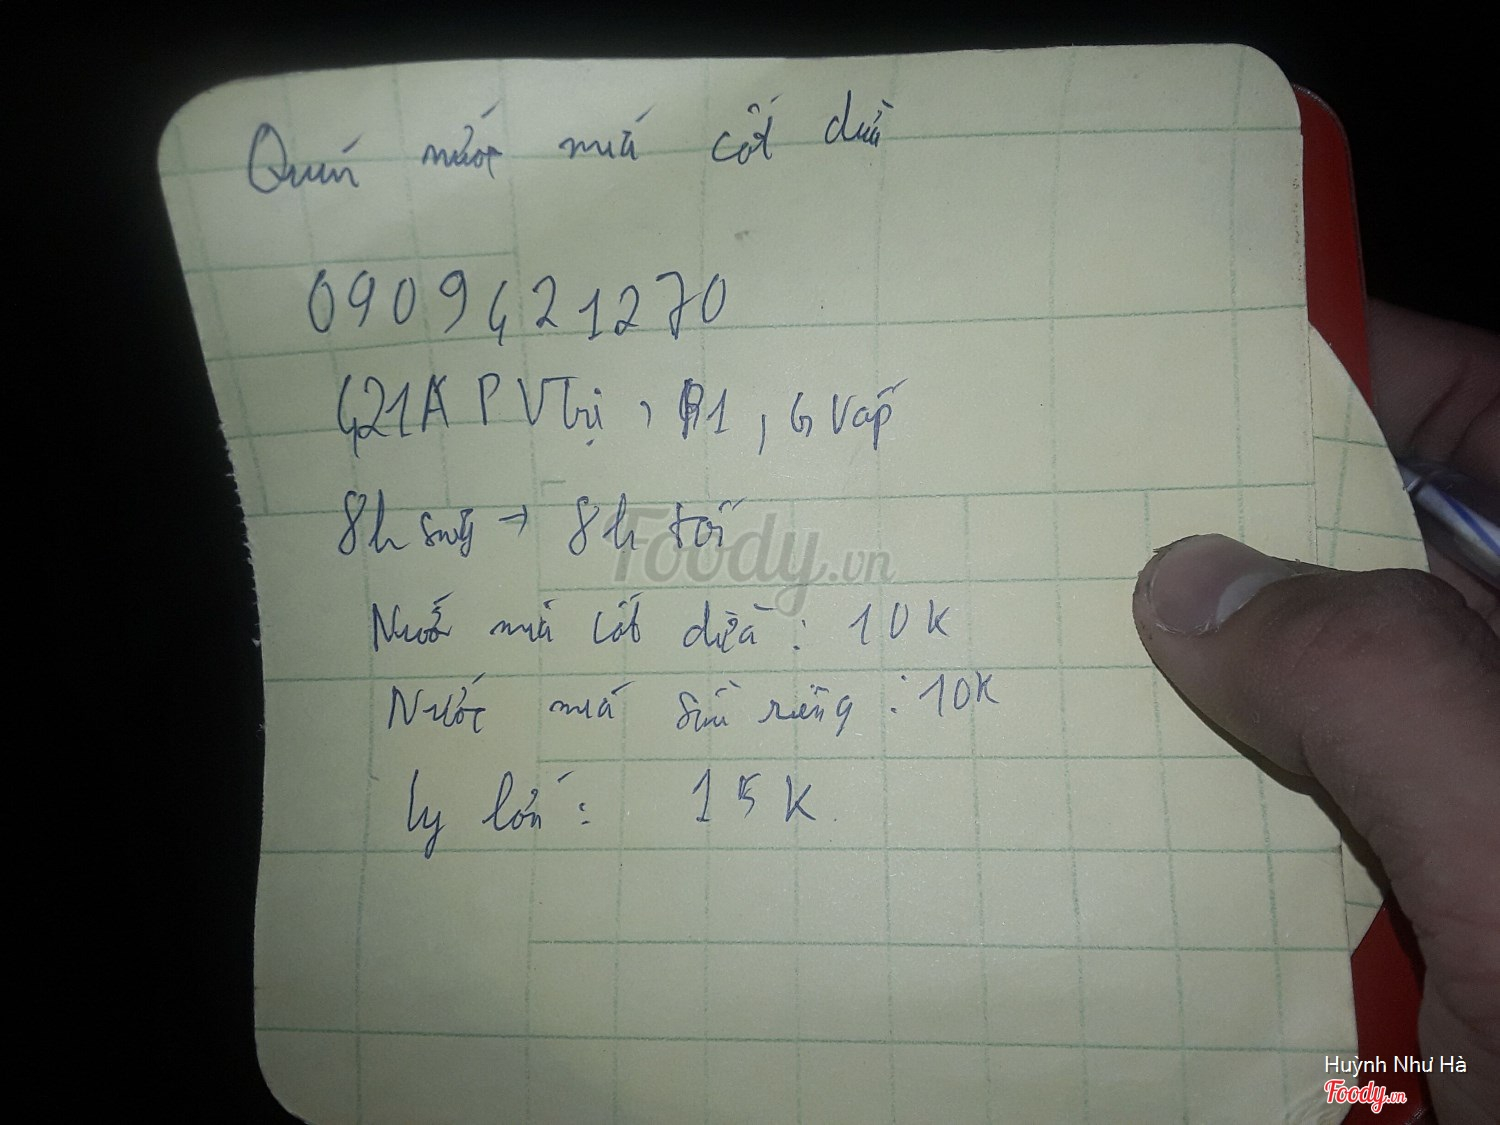 Quán nước mía cốt dừa
0909421270
421A P V Trị, P1, G Vấp
8h sáng → 8h tối
Foody.vn
Nước mía cốt dừa : 10K
Nước mía sầu riêng : 10K
ly lớn : 15K
Huỳnh Như Hà
Foody.vn